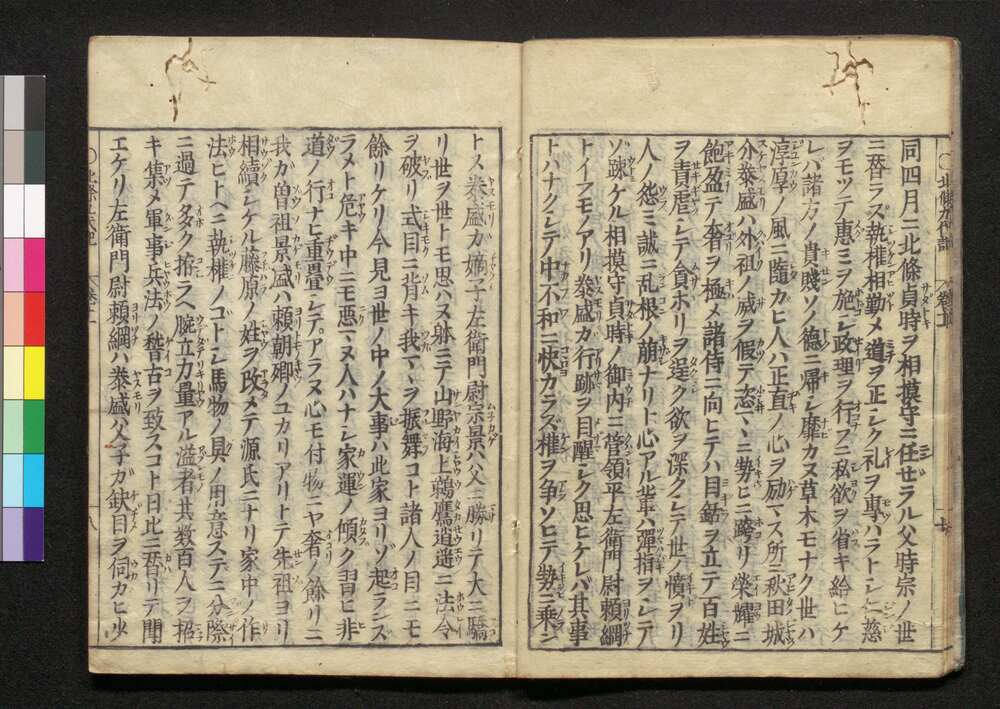 同四月ニ北條貞時ヲ相摸守ニ任セラル父時宗ノ世
ニ替ラス執權相勤メ道ヲ正シク礼ヲ專ハラトシ慈
ヲモツテ惠ミヲ施シ政理ヲ行フニ私欲ヲ省キ給ヒケ
レバ諸方ノ貴賤ソノ德ニ帰シ靡カヌ草木モナク世ハ
淳厚ノ風ニ隨カヒ人ハ正直ノ心ヲ励マス所ニ秋田城
介泰盛ハ外祖ノ威ヲ假テ恣マヽニ勢ヒニ跨リ榮耀ニ
飽盈テ奢ヲ極メ諸侍ニ向ヒテハ目鋸ヲ立テ百姓
ヲ責虐シテ貪ホリヲ逞ク欲ヲ深クシテ世ノ憤ヲリ
人ノ怨ミ誠ニ乱根ノ崩ナリト心アル輩ハ彈指ヲシテ
ソ疎ケル相摸守貞時ノ御内ニ管領平左衛門尉頼綱
トイフモノアリ泰盛カ行跡ヲ目醒シク思ヒケレバ其事
トハナクシテ中不和ニ快カラズ權ヲ争ソヒテ勢ニ乗シ
トス泰盛カ嫡子左衛門尉宗景ハ父ニ勝リテ大ニ驕
リ世ヲ世トモ思ハス舩ニテ山野海上鷂鷹逍遥ニ法令
ヲ破リ式目ニ背キ我マヽヲ振舞コト諸人ノ目ニモ
餘リケリ今見ヨ世ノ中ノ大事ハ此家ヨリソ起ランズ
ラメト危キ中ニモ悪マヌ人ハナシ家運ノ傾ク習ヒ非
道ノ行ナヒ重畳シテアラヌ心モ付物ニヤ奢ノ餘リニ
我カ曽祖景盛ハ頼朝卿ノユカリアリトテ先祖ヨリ
相續シケル藤原ノ姓ヲ改メテ源氏ニナリ家中ノ作
法ヒトヘニ執權ノコトシ馬物ノ具ノ用意ステニ分際
ニ過テタク拵ラヘ腕立力量アル溢者共数百人ヲ招
キ集メ軍事兵法ノ嵆古ヲ致スコト日比ニ替リテ聞
エケリ左衛門尉頼綱ハ泰盛父子カ缺目ヲ伺カヒ少